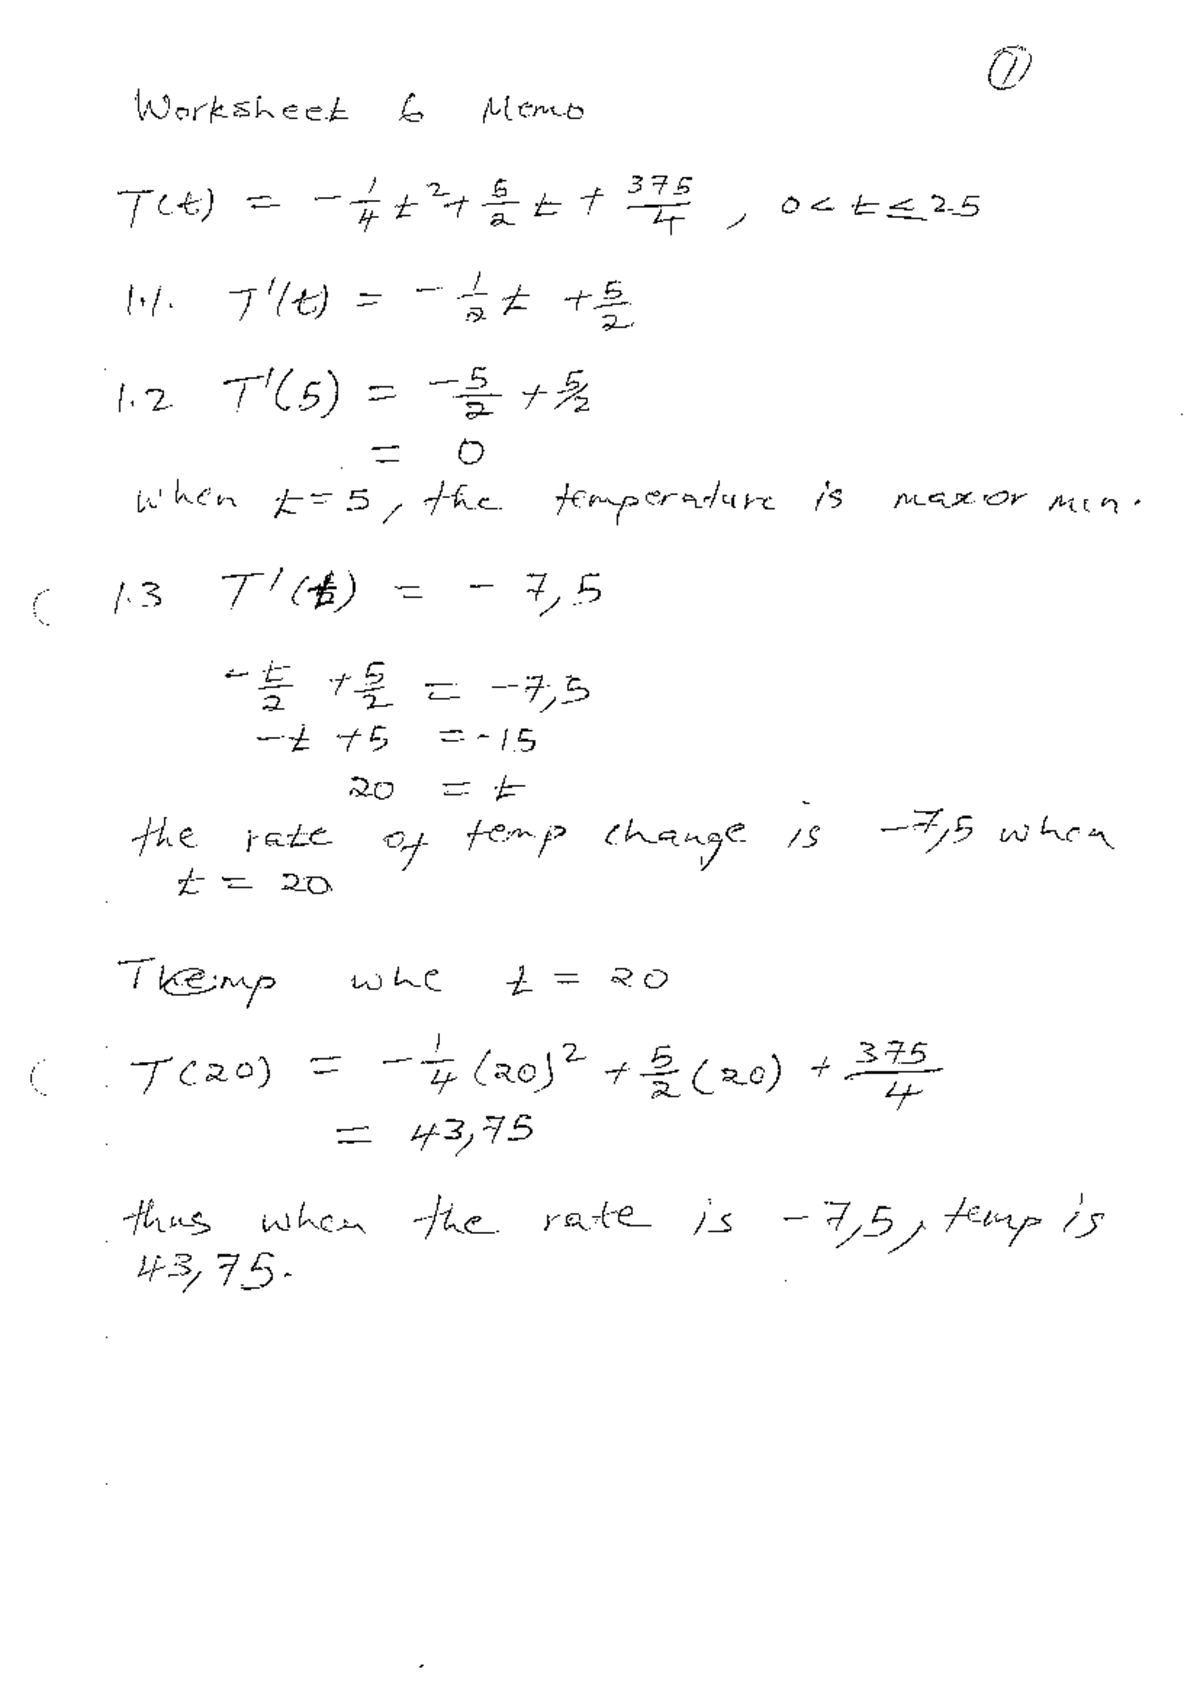 ①
Worksheet 6 Memo
T(t) = -1/4 t² + 5/2 t + 375/4 , 0 < t ≤ 25
1.1. T'(t) = -1/2 t + 5/2
1.2 T'(5) = -5/2 + 5/2
= 0
when t = 5, the temperature is max or min.
1.3 T'(t) = - 7,5
-t/2 + 5/2 = -7,5
-t + 5 = -15
20 = t
the rate of temp change is -7,5 when
t = 20
Tkemp whe t = 20
T(20) = -1/4 (20)² + 5/2 (20) + 375/4
= 43,75
thus when the rate is -7,5, temp is
43,75.